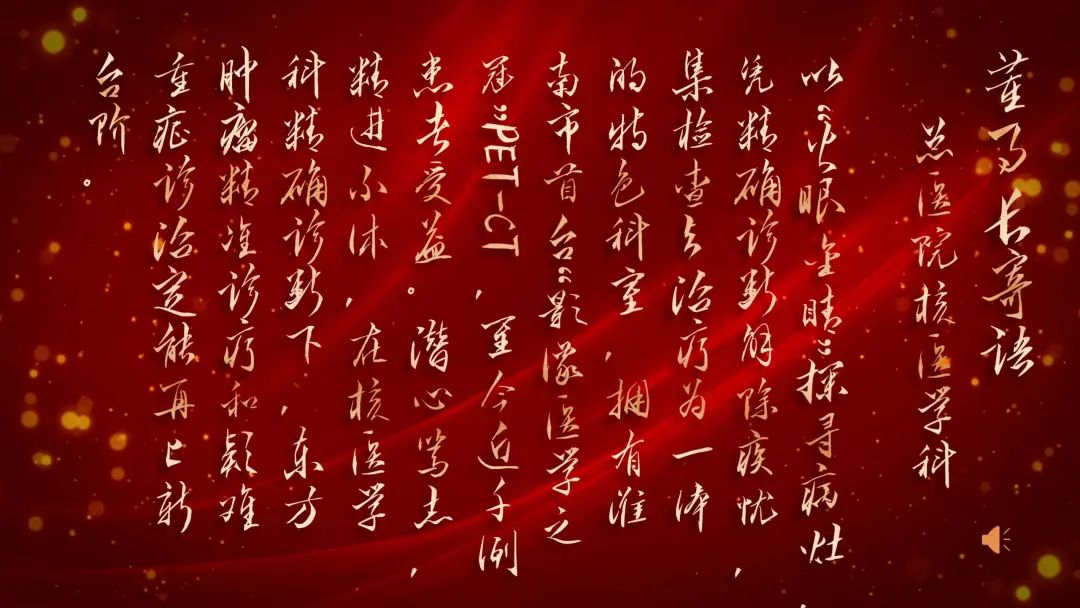 董事长寄语
总医院核医学科
以“火眼金睛”探寻病灶,
凭精确诊断解除疾忧,
集检查与治疗为一体
的特色科室,拥有淮
南市首台“影像医学之
冠”PET-CT,至今近千例
患者受益。潜心笃志,
精进不休,在核医学
科精确诊断下,东方
肿瘤精准诊疗和疑难
重症诊治定能再上新
台阶。